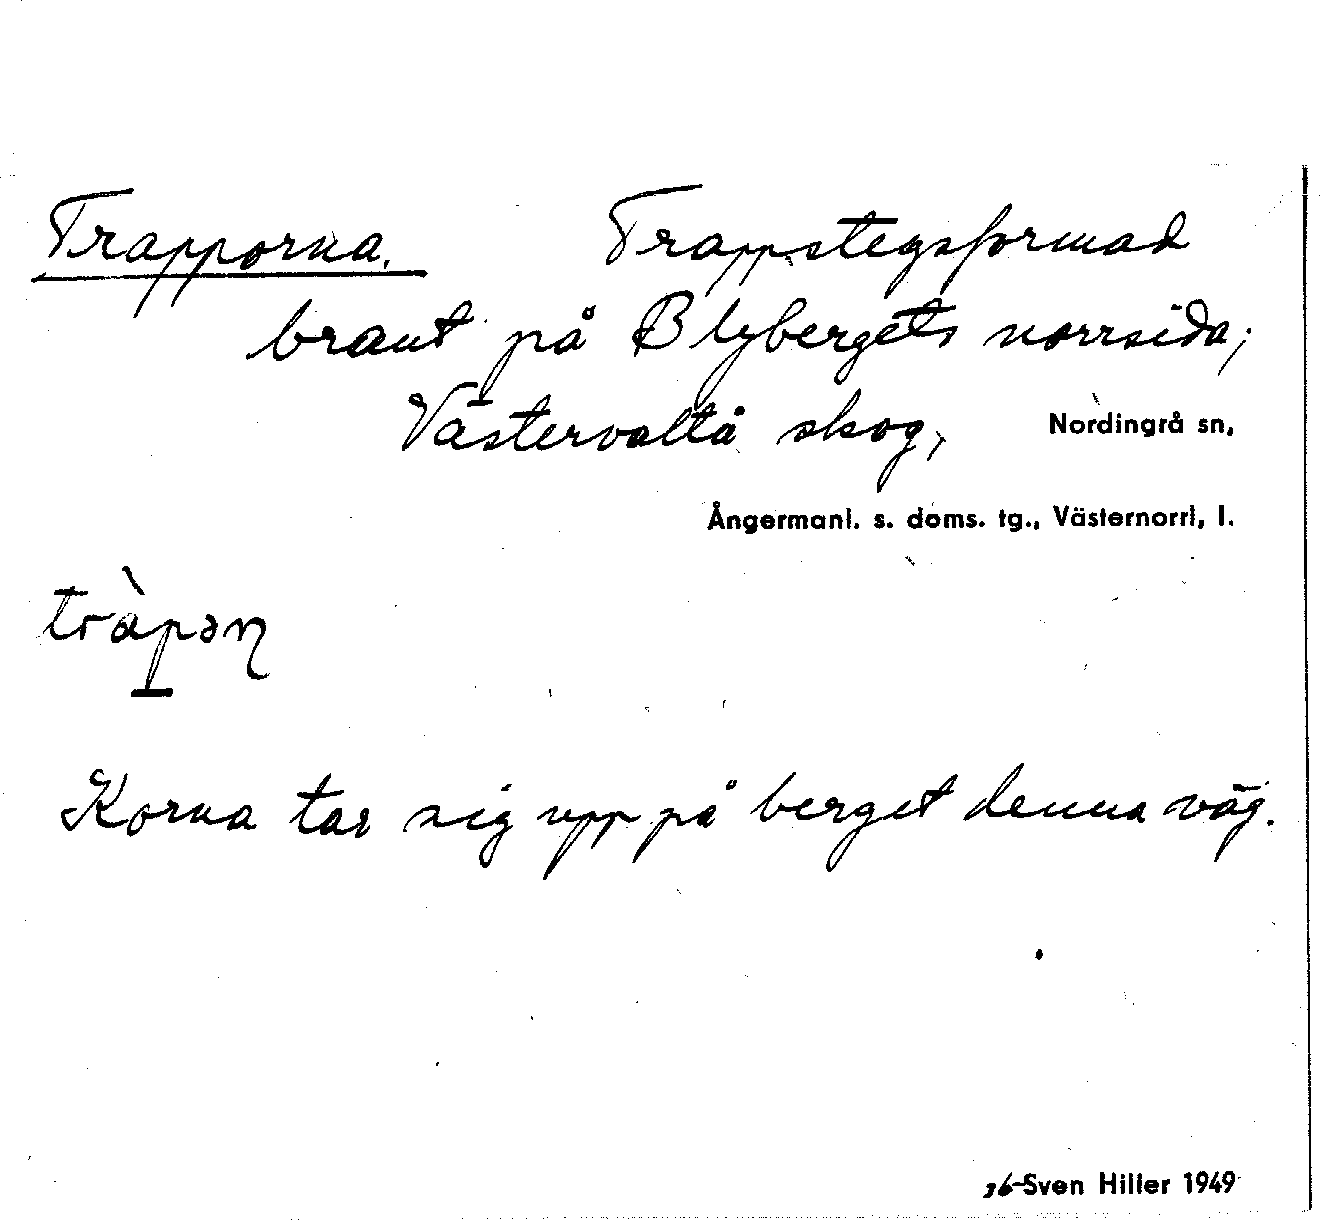 Trapporna. Trappstegsformad
brant på Blybergets norrsida;
Västervåltå skog, Nordingrå sn,
Ångermanl. s. doms. tg., Västernorrl, l.
tràpəɳ
Korna tar sig upp på berget denna väg.
Sven Hiller 1949